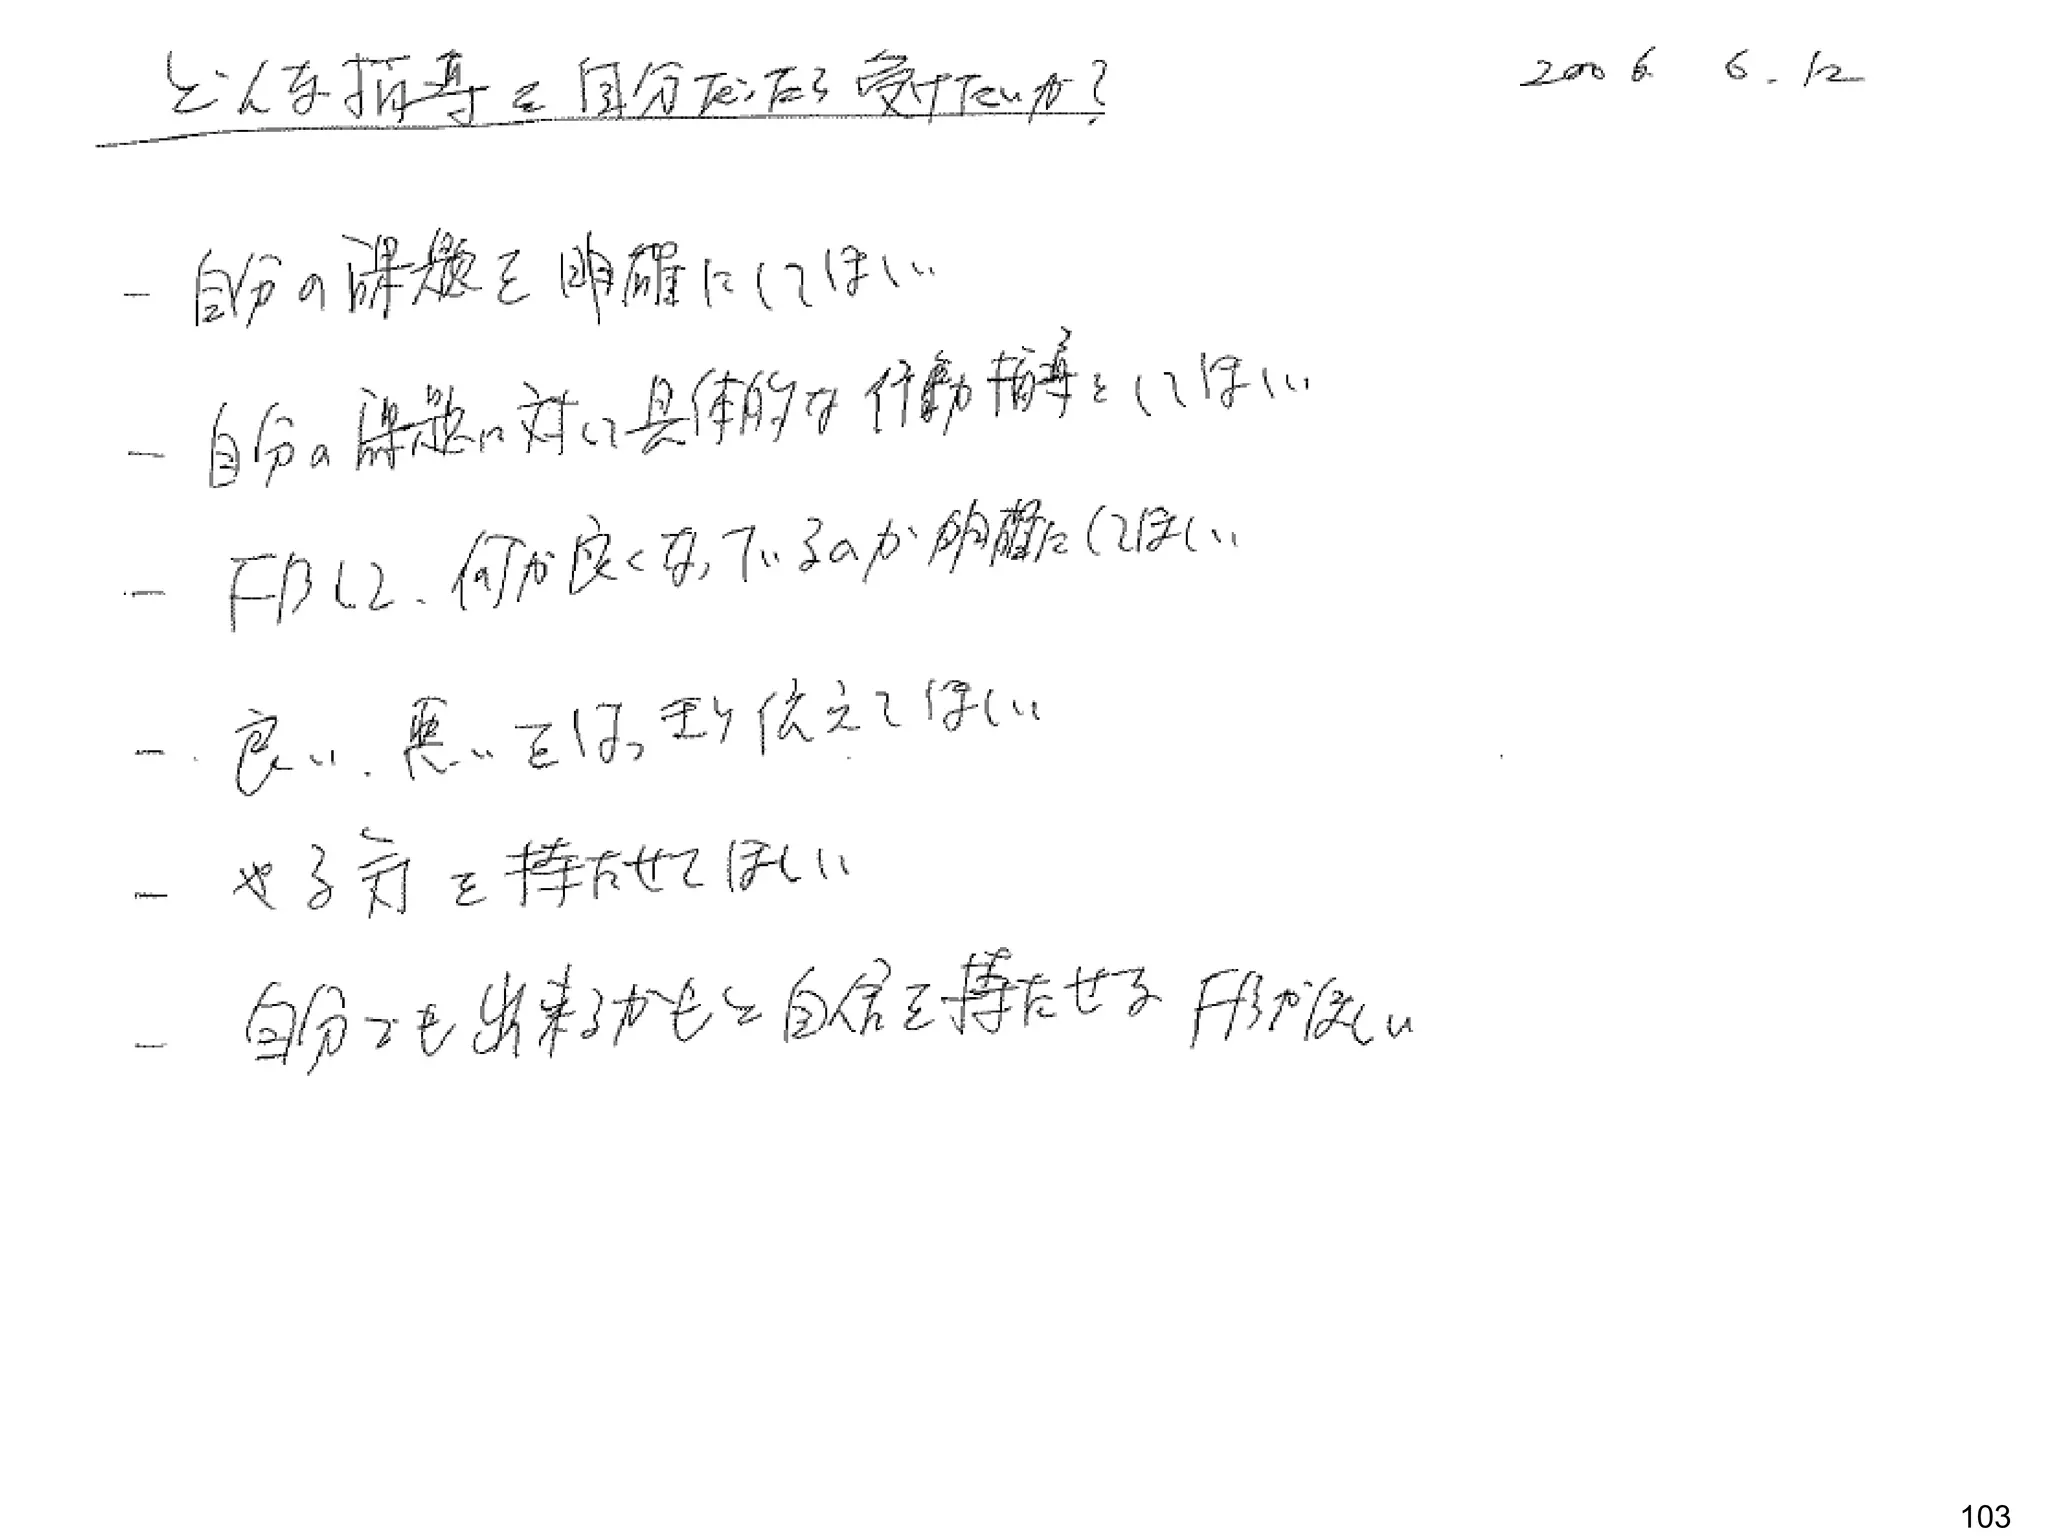 どんな指導を自分だったら受けたいか?
2006 6.12
- 自分の課題を明確にしてほしい
- 自分の課題に対して具体的な行動指導をしてほしい
- FBして、何が良くなっているのか明確にしてほしい
- 良い、悪いをはっきり伝えてほしい
- やる気を持たせてほしい
- 自分でも出来るかもと自信を持たせるFBがほしい
103